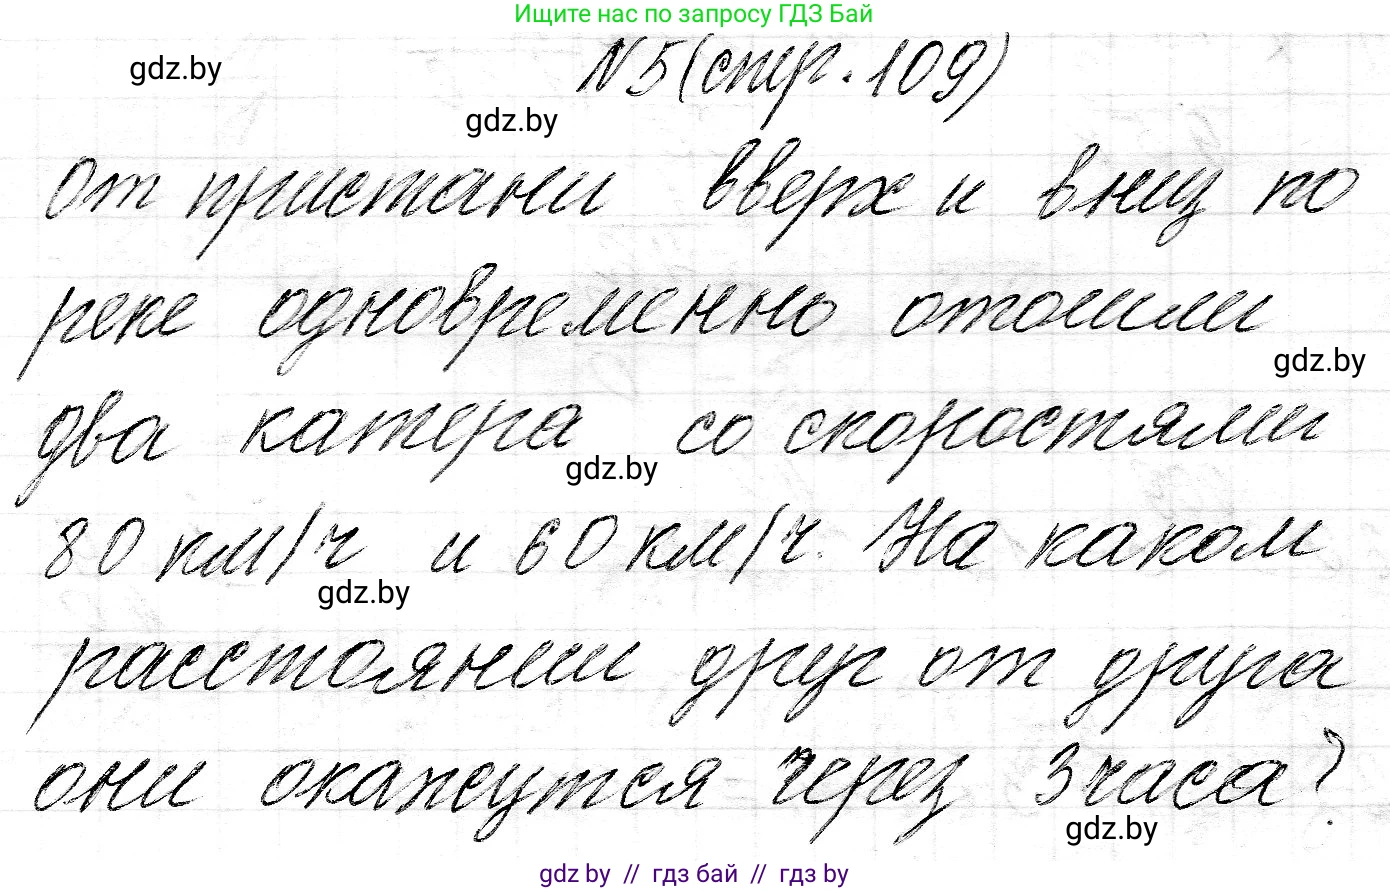 Ищите нас по запросу ГДЗ Бай
N5 (стр. 109)
gdz.by
gdz.by
От пристани вверх и вниз по
реке одновременно отошли
gdz.by
два катера со скоростями
gdz.by
80 км/ч и 60 км/ч. На каком
gdz.by
расстоянии друг от друга
они окажутся через 3 часа?
gdz.by
gdz by // гдз бай // гдз by